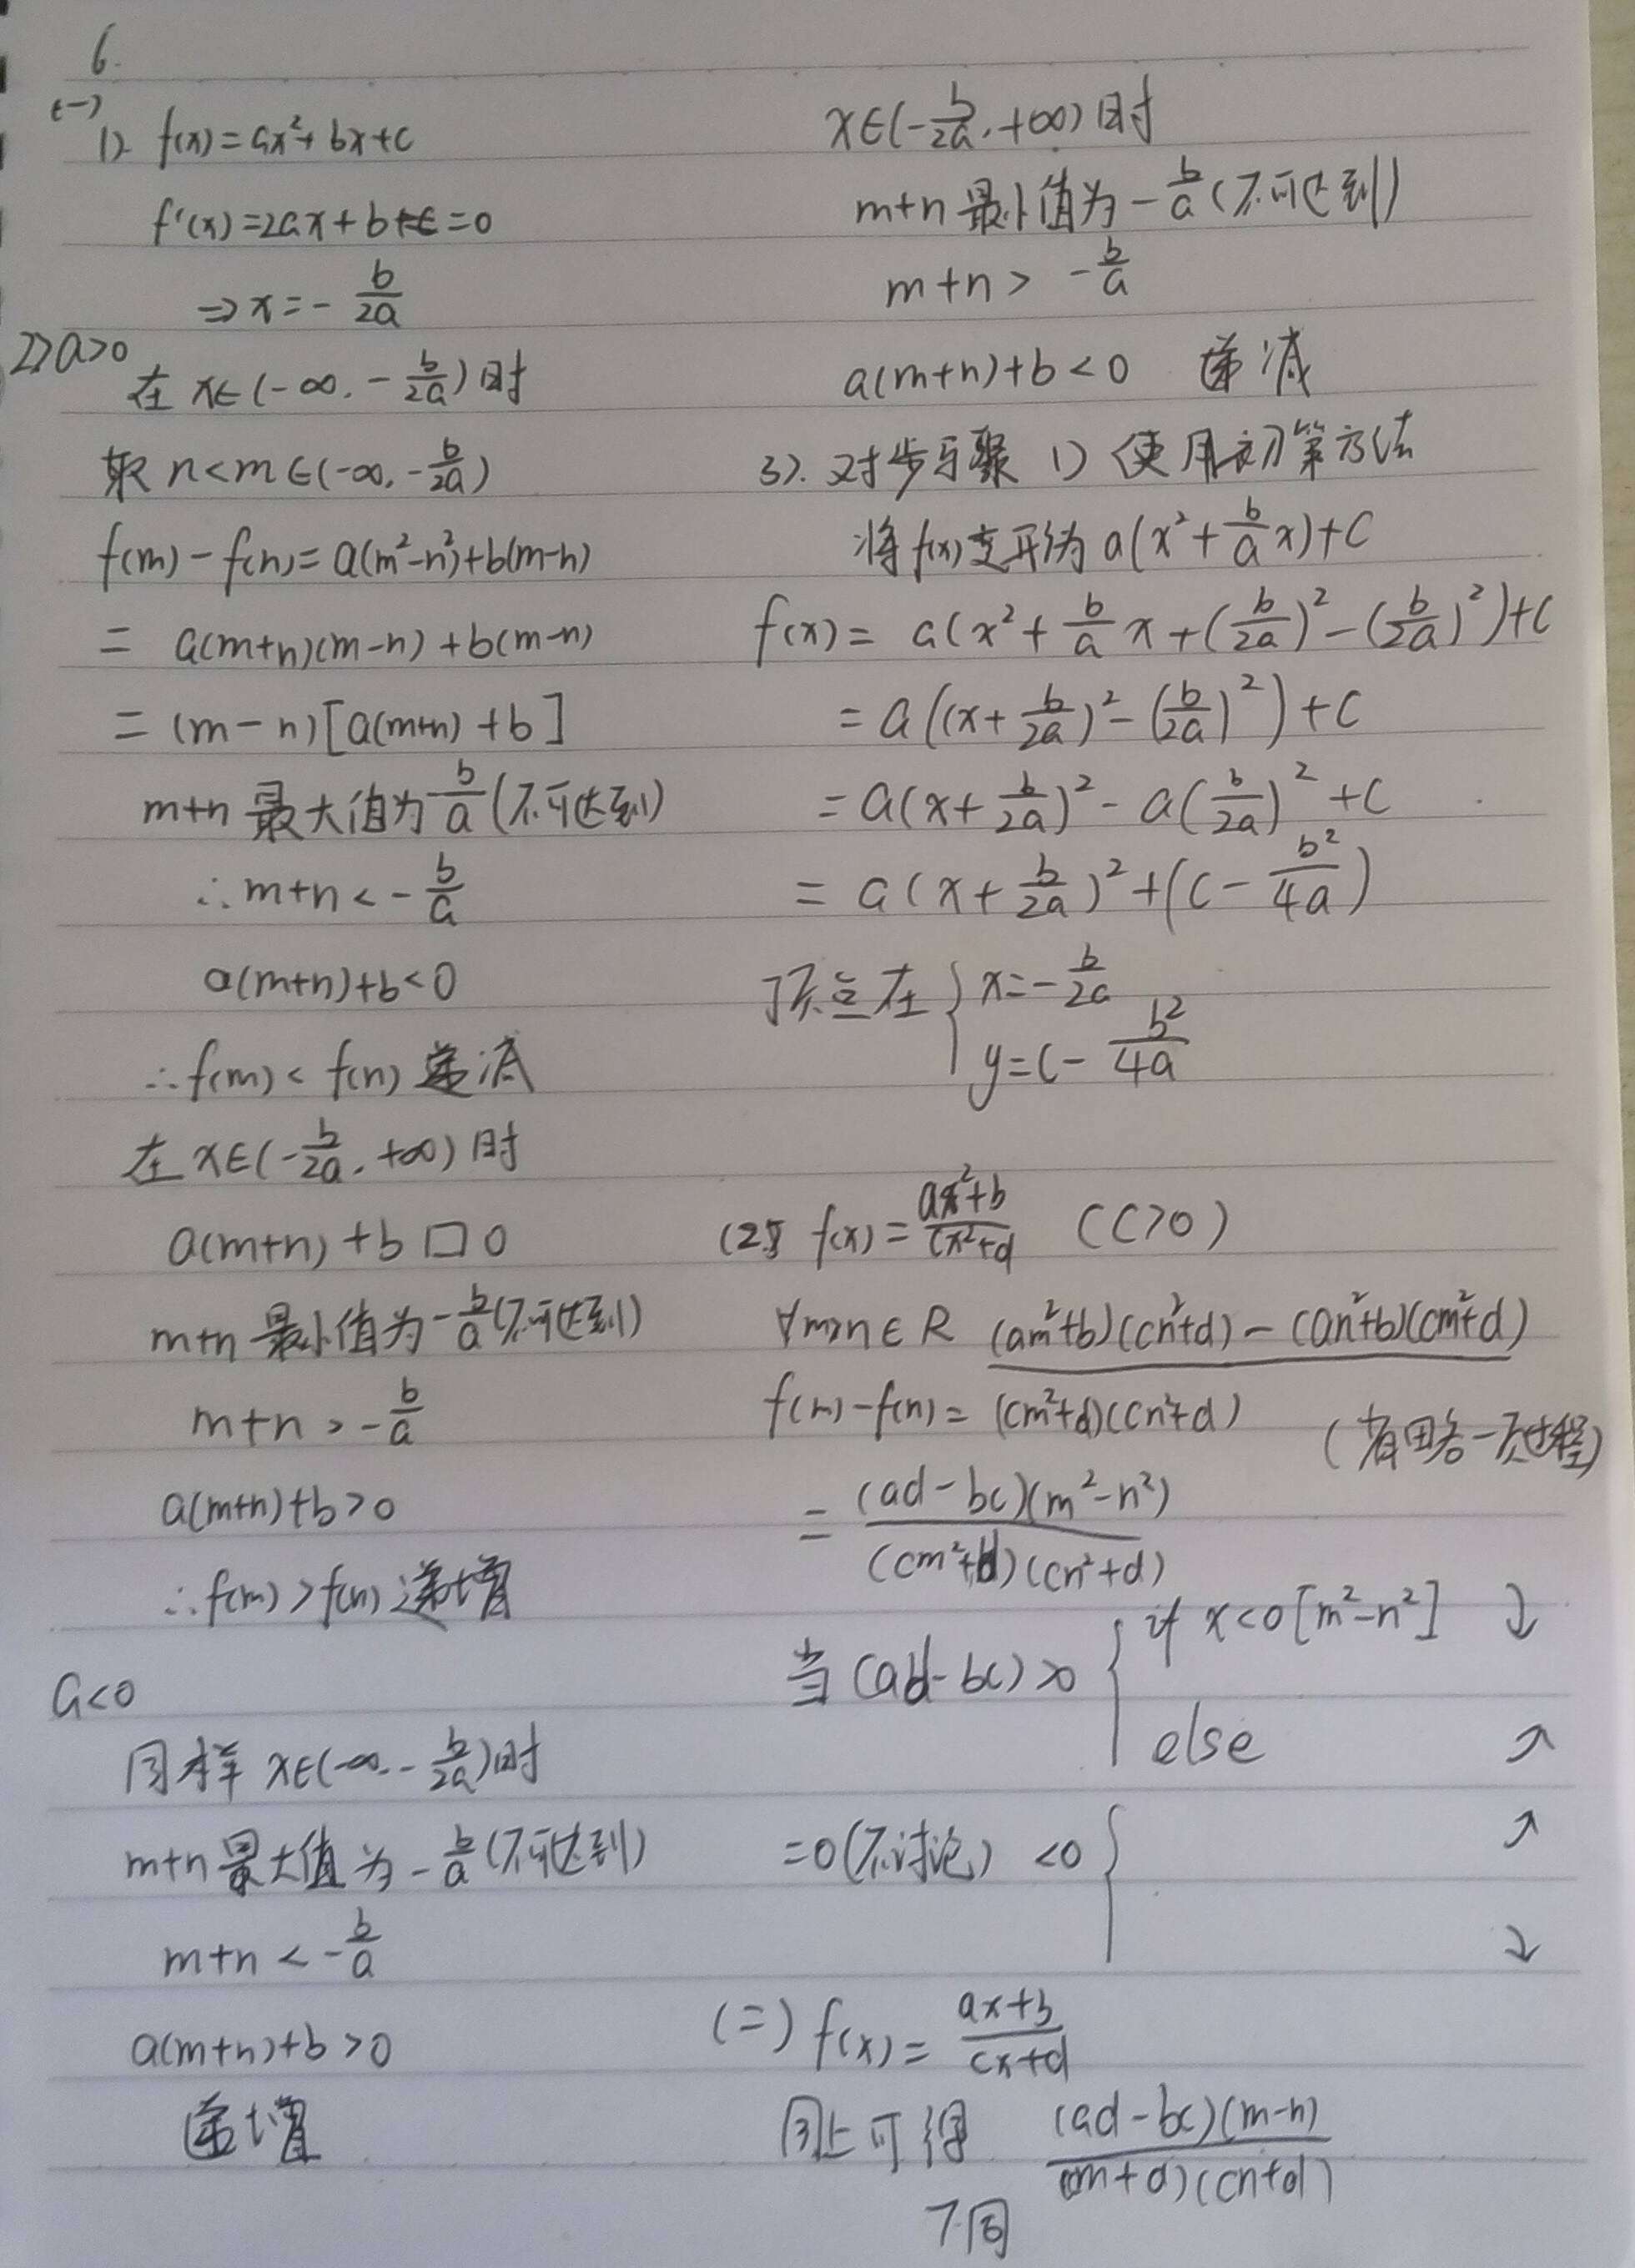 6.
(一)
1) f(x)=ax²+bx+c
f'(x)=2ax+b=0
⇒x=-b/2a
2) a>0
在 x∈(-∞, -b/2a)时
取 n<m∈(-∞, -b/2a)
f(m)-f(n)=a(m²-n²)+b(m-n)
= a(m+n)(m-n)+b(m-n)
= (m-n)[a(m+n)+b]
m+n 最大值为-b/a(不可达到)
∴m+n<-b/a
a(m+n)+b<0
∴f(m)<f(n) 递减
在 x∈(-b/2a, +∞)时
a(m+n)+b□0
m+n 最小值为-b/a(不可达到)
m+n>-b/a
a(m+n)+b>0
∴f(m)>f(n) 递增
a<0
同样 x∈(-∞, -b/2a)时
m+n最大值为-b/a(不可达到)
m+n<-b/a
a(m+n)+b>0
递增
x∈(-b/2a, +∞)时
m+n最小值为-b/a(不可达到)
m+n>-b/a
a(m+n)+b<0 递减
3). 对步骤 1) 使用初等方法
将f(x)变形为a(x²+b/a x)+C
f(x)= a(x²+b/a x+(b/2a)²-(b/2a)²)+C
=a((x+b/2a)²-(b/2a)²)+C
=a(x+b/2a)²-a(b/2a)²+C
=a(x+b/2a)²+(C-b²/4a)
顶点在{x=-b/2a
y=C-b²/4a
(2) f(x)=ax²+b/cx²+d (C>0)
∀m>n∈R (am²+b)(cn²+d)-(an²+b)(cm²+d)
f(m)-f(n)= (cm²+d)(cn²+d)
(省略一下过程)
= (ad-bc)(m²-n²)/(cm²+d)(cn²+d)
当(ad-bc)>0 { if x<0[m²-n²] ↘
else ↗
=0(不讨论) <0{ ↗
↘
(二) f(x)=ax+b/cx+d
同上可得 (ad-bc)(m-n)/(cm+d)(cn+d)
下同